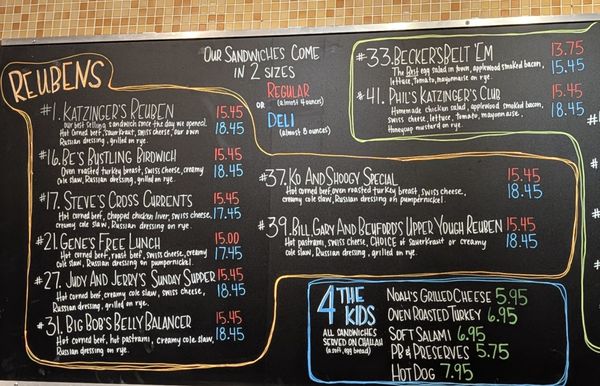 REUBENS
#1. KATZINGER'S REUBEN 15.45
Our best selling sandwich since the day we opened. 18.45
Hot corned beef, sauerkraut, swiss cheese, our own
Russian dressing, grilled on rye.
#16. BE'S BUSTLING BIRDWICH 15.45
Oven roasted turkey breast, swiss cheese, creamy 18.45
cole slaw, Russian dressing, grilled on rye.
#17. STEVE'S CROSS CURRENTS 15.45
Hot corned beef, chopped chicken liver, swiss cheese, 17.45
creamy cole slaw, Russian dressing, grilled on rye.
#21. GENE'S FREE LUNCH 15.00
Hot corned beef, roast beef, swiss cheese, creamy 17.45
cole slaw, Russian dressing on pumpernickel.
#27. JUDY AND JERRY'S SUNDAY SUPPER 15.45
Hot corned beef, creamy cole slaw, swiss cheese, 18.45
Russian dressing, grilled on rye.
#31. BIG BOB'S BELLY BALANCER 15.45
Hot corned beef, hot pastrami, creamy cole slaw, 18.45
Russian dressing on rye.
OUR SANDWICHES COME
IN 2 SIZES
REGULAR
OR (almost 4 ounces)
DELI
(almost 8 ounces)
#33. BECKER'S BELT 'EM 13.75
The Best egg salad in town, applewood smoked bacon, 15.45
lettuce, tomato, mayonnaise on rye.
#41. PHIL'S KATZINGER'S CLUB 15.45
Homemade chicken salad, applewood smoked bacon, 18.45
swiss cheese, lettuce, tomato, mayonnaise,
Honeycup mustard on rye.
#37. KO AND SHOOGY SPECIAL 15.45
Hot corned beef, oven roasted turkey breast, swiss cheese, 18.45
creamy cole slaw, Russian dressing on pumpernickel.
#39. BILL, GARY AND BEHFORD'S UPPER YOUGH REUBEN 15.45
Hot pastrami, swiss cheese, CHOICE of sauerkraut or creamy 18.45
cole slaw, Russian dressing, grilled on rye.
4 THE
KIDS
ALL SANDWICHES
SERVED ON CHALLAH
(a soft, egg bread)
NOAH'S GRILLED CHEESE 5.95
OVEN ROASTED TURKEY 6.95
SOFT SALAMI 6.95
PB & PRESERVES 5.75
HOT DOG 7.95